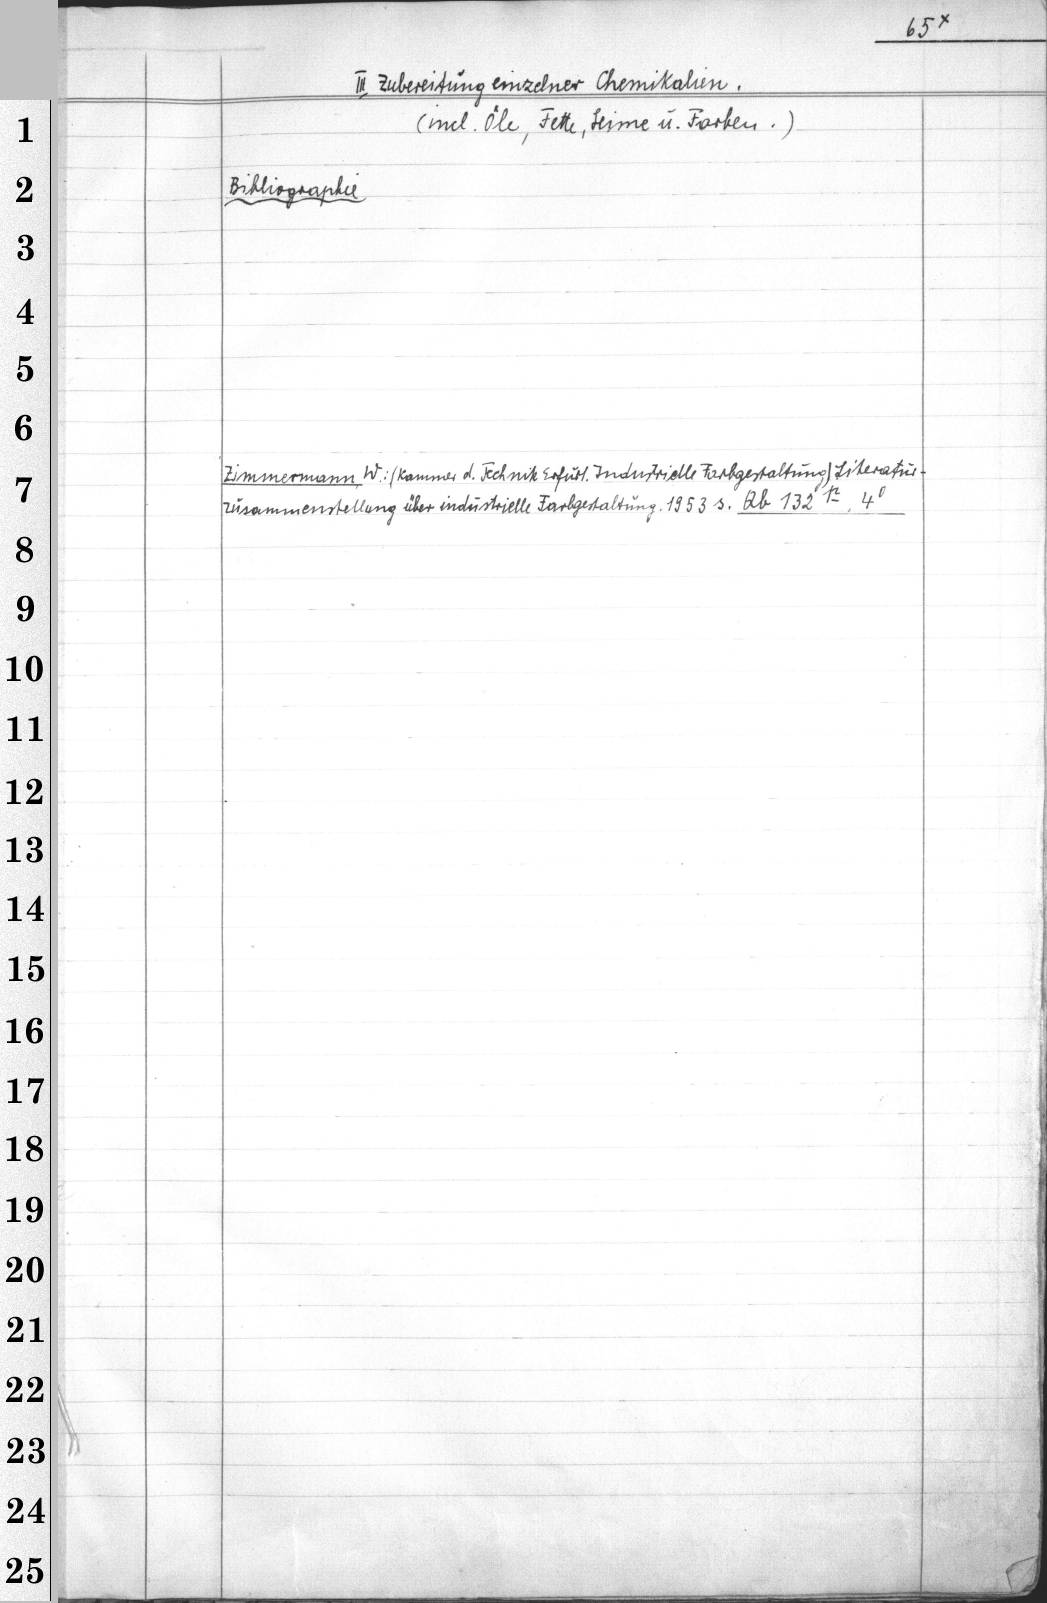 65x
III Zubereitung einzelner Chemikalien.
(incl. Öle, Fette, Leime u. Farben.)
Bibliographie
Zimmermann, W.: (Kammer d. Technik Erfurt. Industrielle Farbgestaltung) Literatur-
zusammenstellung über industrielle Farbgestaltung. 1953 s. Ab 132 , 4°
1
2
3
4
5
6
7
8
9
10
11
12
13
14
15
16
17
18
19
20
21
22
23
24
25